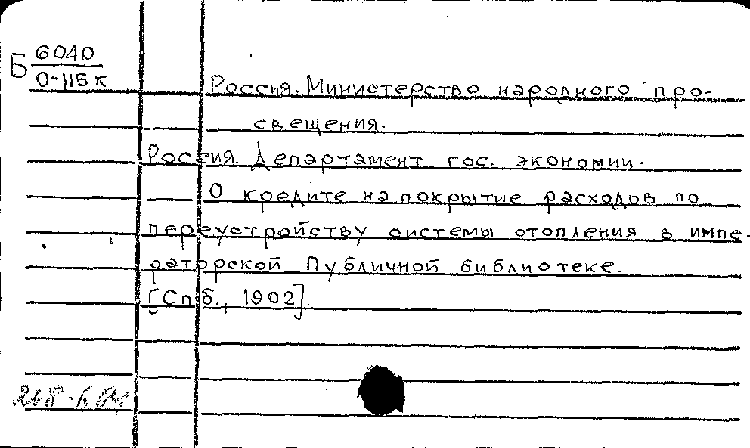 Б 6040
О-115к
Россия. Министерство народного про-
свещения.
Россия Департамент гос. экономии.
О кредите на покрытие расходов по
переустройству системы отопления в импе-
раторской Публичной библиотеке.
[Спб., 1902]